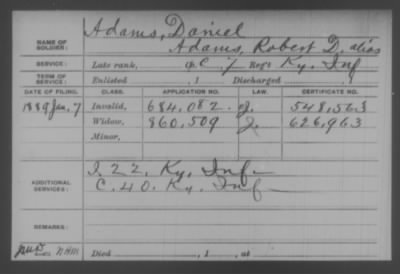 Adams, Daniel
NAME OF SOLDIER: Adams, Robert D. alias
SERVICE: Late rank, C. 7 Reg't Ky. Inf
TERM OF SERVICE: Enlisted , 1 Discharged , 1
DATE OF FILING. CLASS. APPLICATION NO. LAW. CERTIFICATE NO.
1889 Jan. 7 Invalid, 684.082. 548,563
Widow, 860,509 626,963
Minor,
ADDITIONAL SERVICES: I. 22, Ky. Inf
C. 40. Ky. Inf
REMARKS:
Died , 1 , at